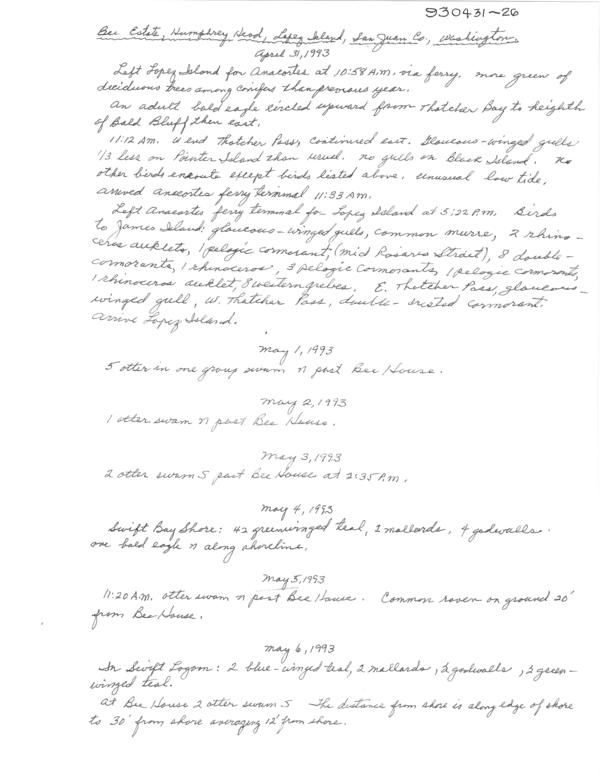 930431-26
Bee Estate, Humphrey Head, Lopez Island, San Juan Co., Washington.
April 31, 1993
Left Lopez Island for Anacortes at 10:58 A.M. via ferry. more green of
deciduous trees among conifers than previous year.
An adult bald eagle circled upward from Thatcher Bay to heighth
of Bald Bluff then east.
11:12 Am. W end Thatcher Pass, continued east. Glaucous-winged gulls
1/3 less on Pointer Island than usual. no gulls on Black Island. no
other birds enroute except birds listed above. unusual low tide,
arrived anacortes ferry terminal 11:33 AM.
Left anacortes ferry terminal for Lopez Island at 5:22 P.M. Birds
to James Island: glaucous-winged gulls, common murre, 2 rhino-
ceros auklets, 1 pelagic cormorant, (mid Rosario Strait), 8 double-
cormorants, 1 rhinoceros, 3 pelagic cormorants, 1 pelagic cormorant,
1 rhinoceros auklet, 8 western grebes. E. Thatcher Pass, glaucous-
winged gull, W. Thatcher Pass, double-crested cormorant.
arrive Lopez Island.
May 1, 1993
5 otter in one group swam n past Bee House.
May 2, 1993
1 otter swam n past Bee House.
May 3, 1993
2 otter swam S past Bee House at 2:35 P.m.
May 4, 1993
Swift Bay Shore: 42 greenwinged teal, 2 mallards, 4 gadwalls.
one bald eagle n along shoreline.
May 5, 1993
11:20 A.M. otter swam n past Bee House. Common raven on ground 20'
from Bee House.
may 6, 1993
In Swift Logom: 2 blue-winged teal, 2 mallards, 2 gadwalls, 2 green-
winged teal.
at Bee House 2 otter swam S The distance from shore is along edge of shore
to 30' from shore averaging 12' from shore.